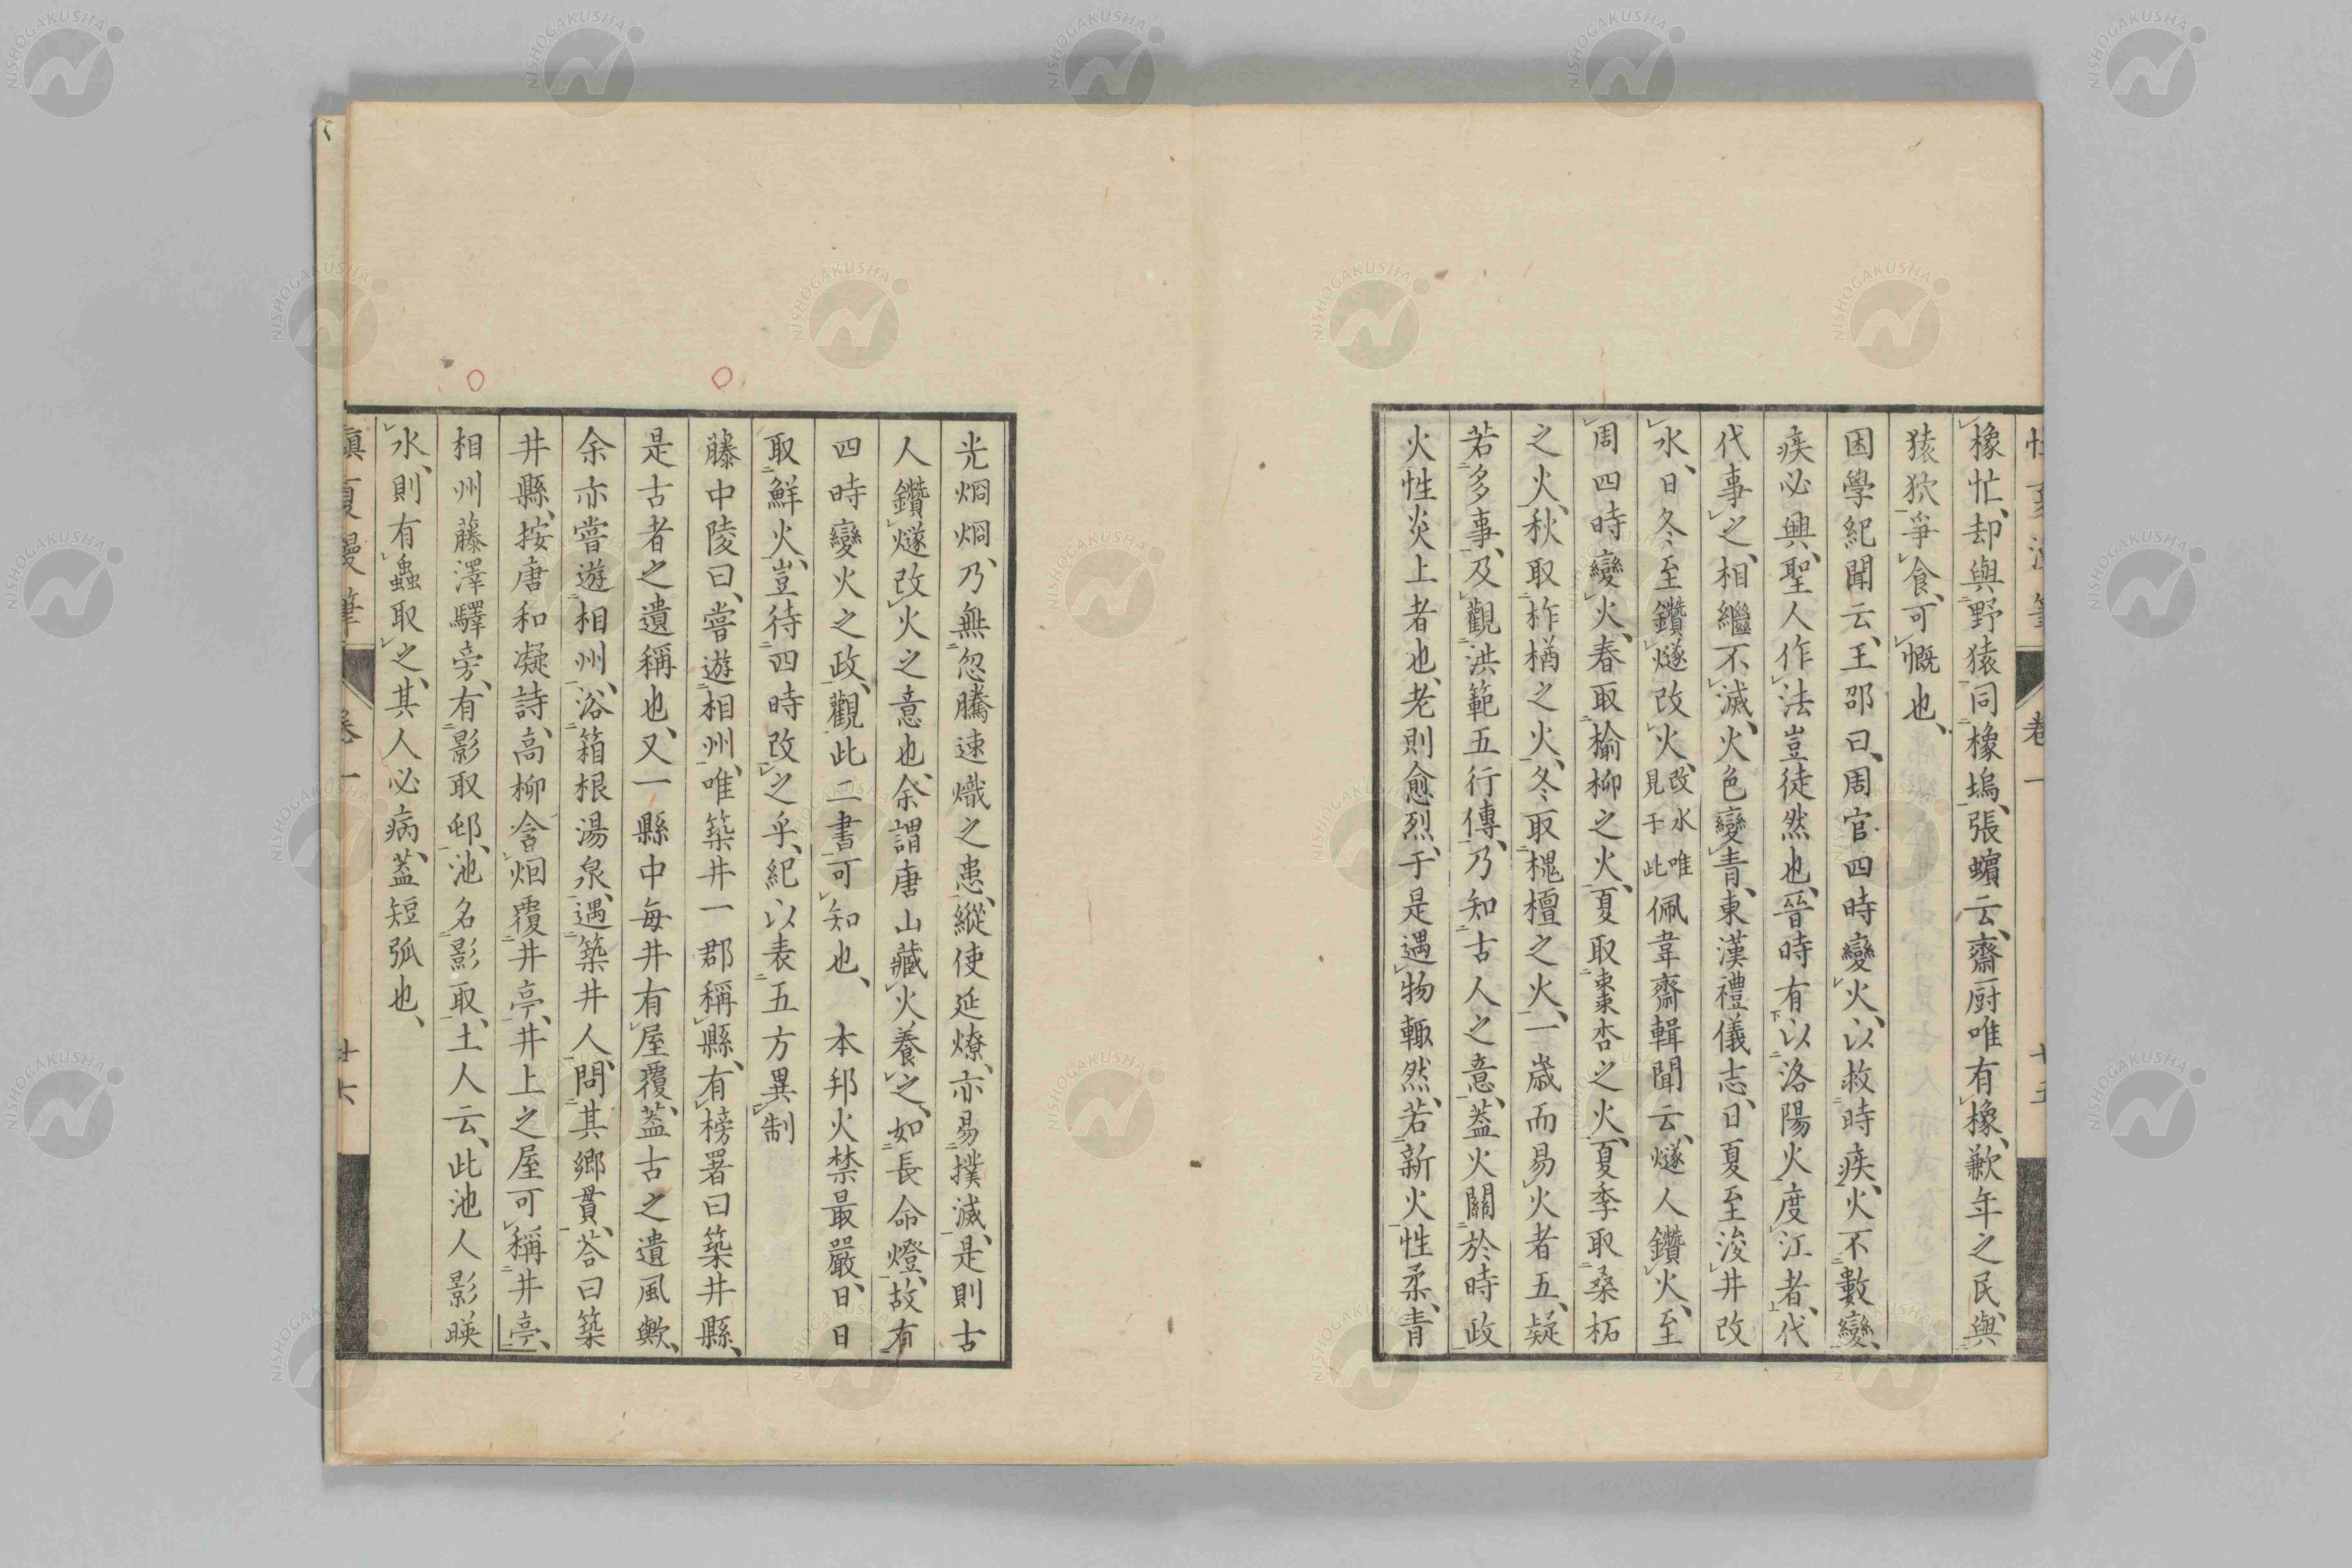 橡忙、却與野猿同橡塢、張蠙云、齋厨唯有橡、歉年之民、與
猿狖爭食、可慨也、
困學紀聞云、王邵曰、周官四時變火、以救時疾、火不數變、
疾必興、聖人作法豈徒然也、晉時有以洛陽火度江者、代
代事之、相繼不滅、火色變青、東漢禮儀志、日夏至浚井改
水、日冬至鑽燧改火、改水唯見于此佩韋齋輯聞云、燧人鑽火、至
周四時變火、春取榆柳之火、夏取棗杏之火、夏季取桑柘
之火、秋取柞楢之火、冬取槐檀之火、一歳而易火者五、疑
若多事、及觀洪範五行傳、乃知古人之意、蓋火關於時政
火性炎上者也、老則愈烈、于是遇物輙然、若新火性柔、青
光烱烱、乃無忽騰速熾之患、縱使延燎、亦易撲滅、是則古
人鑽燧改火之意也、余謂唐山藏火養之、如長命燈、故有
四時變火之政、觀此二書可知也、本邦火禁最嚴、日日
取鮮火、豈待四時改之乎、紀以表五方異制
藤中陵曰、嘗遊相州、唯築井一郡稱縣、有榜署曰築井縣、
是古者之遺稱也、又一縣中每井有屋覆、蓋古之遺風歟、
余亦嘗遊相州、浴箱根湯泉、遇築井人、問其鄉貫、荅曰築
井縣、按唐和凝詩、高柳含烟覆井亭、井上之屋可稱井亭、
相州藤澤驛旁、有影取邨、池名影取、土人云、此池人影暎
水、則有蟲取之、其人必病、蓋短弧也、
卷一